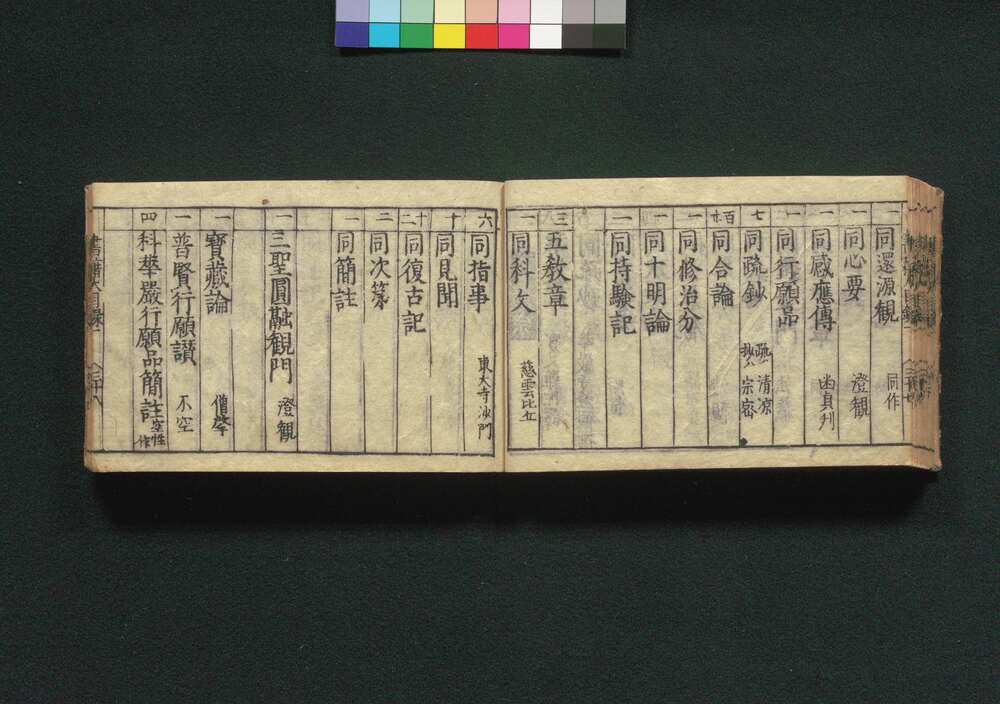 一 同還源観 同作
一 同心要 澄観
一 同感應傳 幽貞刋
一 同行願品
七 同䟽鈔 䟽ハ清凉 抄ハ宗密
百廿 同合論
一 同修治分
一 同十明論
一 同持験記
三 五教章
一 同科文 慈雲比丘
六 同指事 東大寺沙門
十 同見聞
十二 同復古記
二 同次第
一 同簡註
一 三聖圓融観門 澄観
一 寳藏論 僧肇
一 普賢行願讃 不空
四 科華嚴行願品簡註 空性作